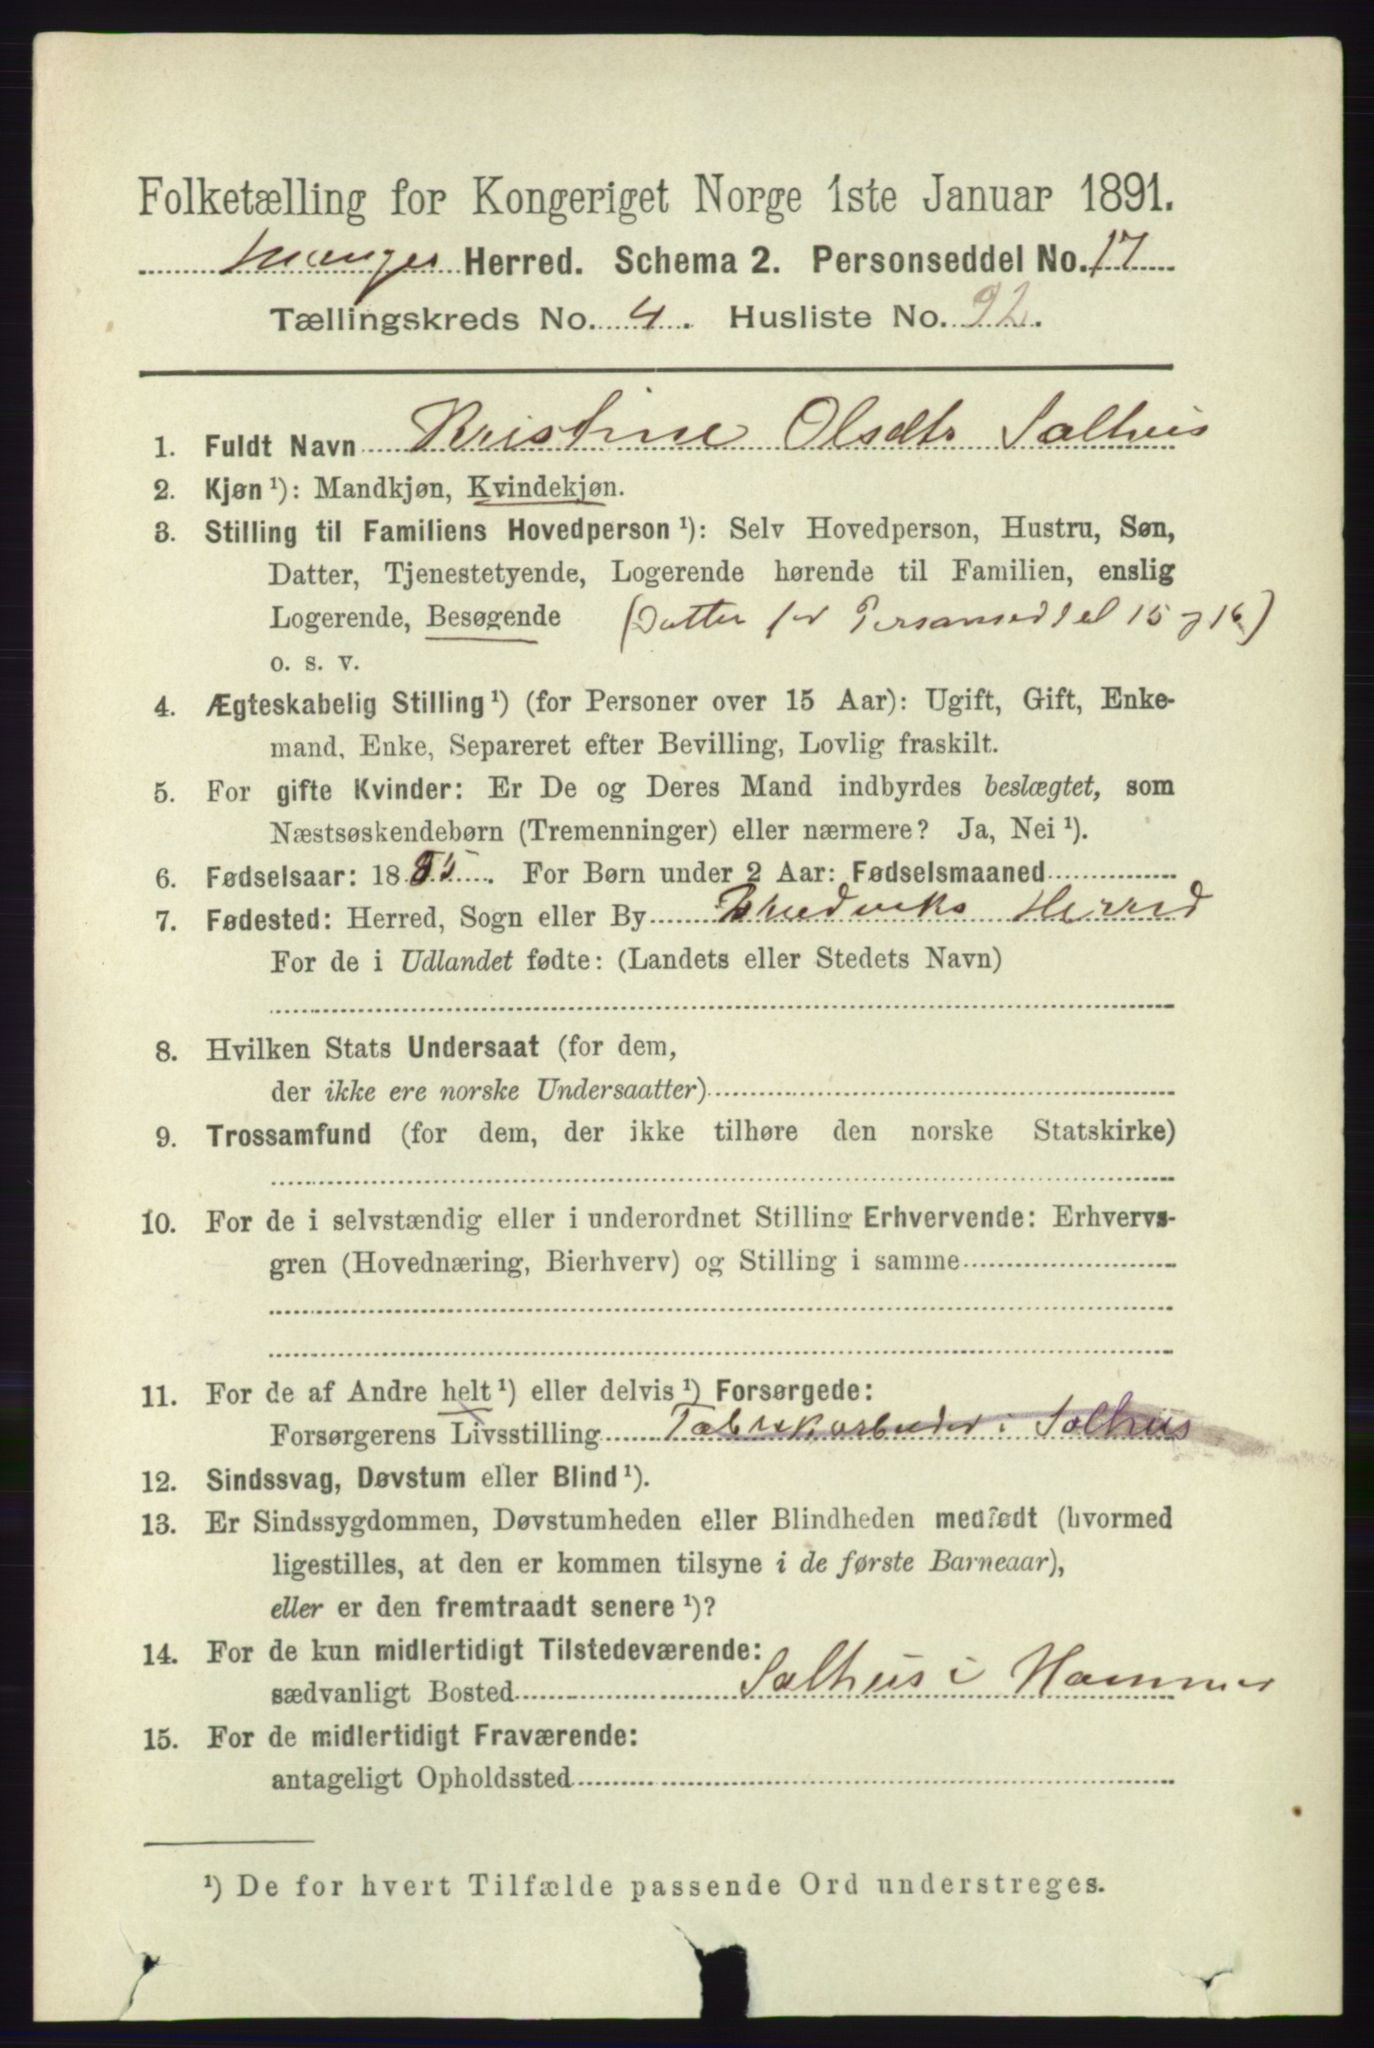 Folketælling for Kongeriget Norge 1ste Januar 1891.
Manger Herred. Schema 2. Personseddel No. 17
Tællingskreds No. 4. Husliste No. 92.
1. Fuldt Navn Kristine Olsdtr Salhus
2. Kjøn ¹): Mandkjøn, Kvindekjøn.
3. Stilling til Familiens Hovedperson ¹): Selv Hovedperson, Hustru, Søn,
Datter, Tjenestetyende, Logerende hørende til Familien, enslig
Logerende, Besøgende (Datter for Personseddel 15 og 16)
o. s. v.
4. Ægteskabelig Stilling ¹) (for Personer over 15 Aar): Ugift, Gift, Enke-
mand, Enke, Separeret efter Bevilling, Lovlig fraskilt.
5. For gifte Kvinder: Er De og Deres Mand indbyrdes beslægtet, som
Næstsøskendebørn (Tremenninger) eller nærmere? Ja, Nei ¹).
6. Fødselsaar: 1885. For Børn under 2 Aar: Fødselsmaaned
7. Fødested: Herred, Sogn eller By Herred
For de i Udlandet fødte: (Landets eller Stedets Navn)
8. Hvilken Stats Undersaat (for dem,
der ikke ere norske Undersaatter)
9. Trossamfund (for dem, der ikke tilhøre den norske Statskirke)
10. For de i selvstændig eller i underordnet Stilling Erhvervende: Erhvervs-
gren (Hovednæring, Bierhverv) og Stilling i samme
11. For de af Andre helt ¹) eller delvis ¹) Forsørgede:
Forsørgerens Livsstilling Fabrikarbeider i Salhus
12. Sindssvag, Døvstum eller Blind ¹).
13. Er Sindssygdommen, Døvstumheden eller Blindheden medfødt (hvormed
ligestilles, at den er kommen tilsyne i de første Barneaar),
eller er den fremtraadt senere ¹)?
14. For de kun midlertidigt Tilstedeværende:
sædvanligt Bosted Salhus i Hammer
15. For de midlertidigt Fraværende:
antageligt Opholdssted
¹) De for hvert Tilfælde passende Ord understreges.